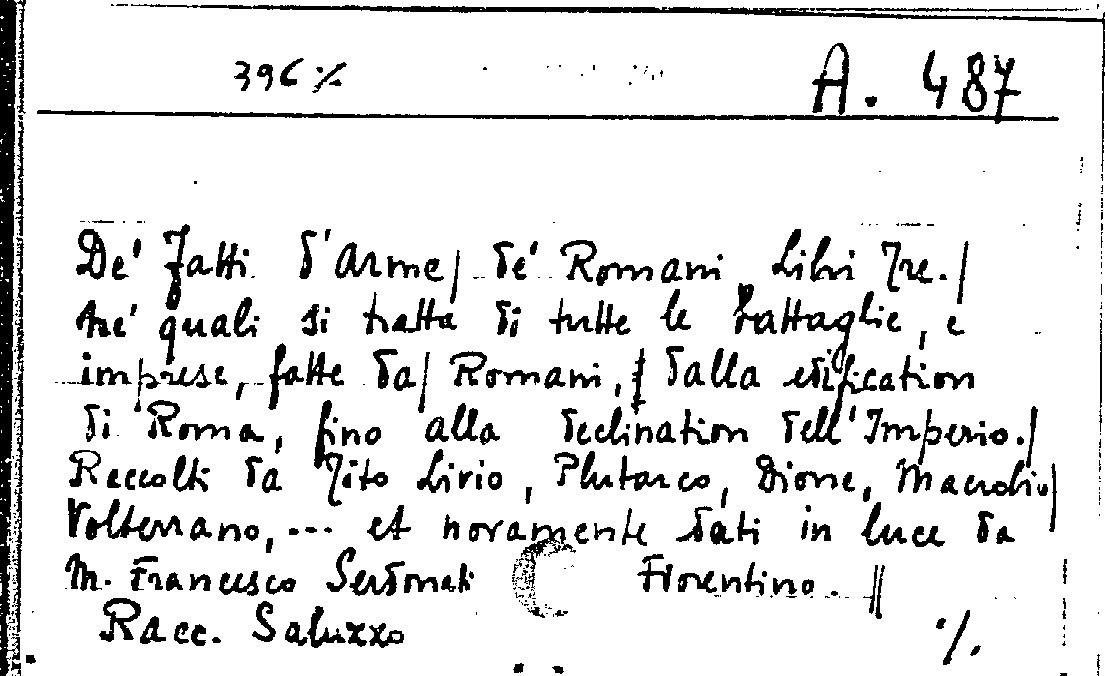 396 ⁒ A. 487
De' Fatti d'Arme/ de' Romani Libri Tre./
ne' quali si tratta di tutte le battaglie, e
imprese, fatte da/ Romani, / dalla edification
di Roma, fino alla declination dell'Imperio./
Raccolti da Tito Livio, Plutarco, Dione, Macrobio/
Volterrano, --- et novamente dati in luce da
M. Francesco Serdonati Fiorentino. ||
Racc. Saluzzo ·/.